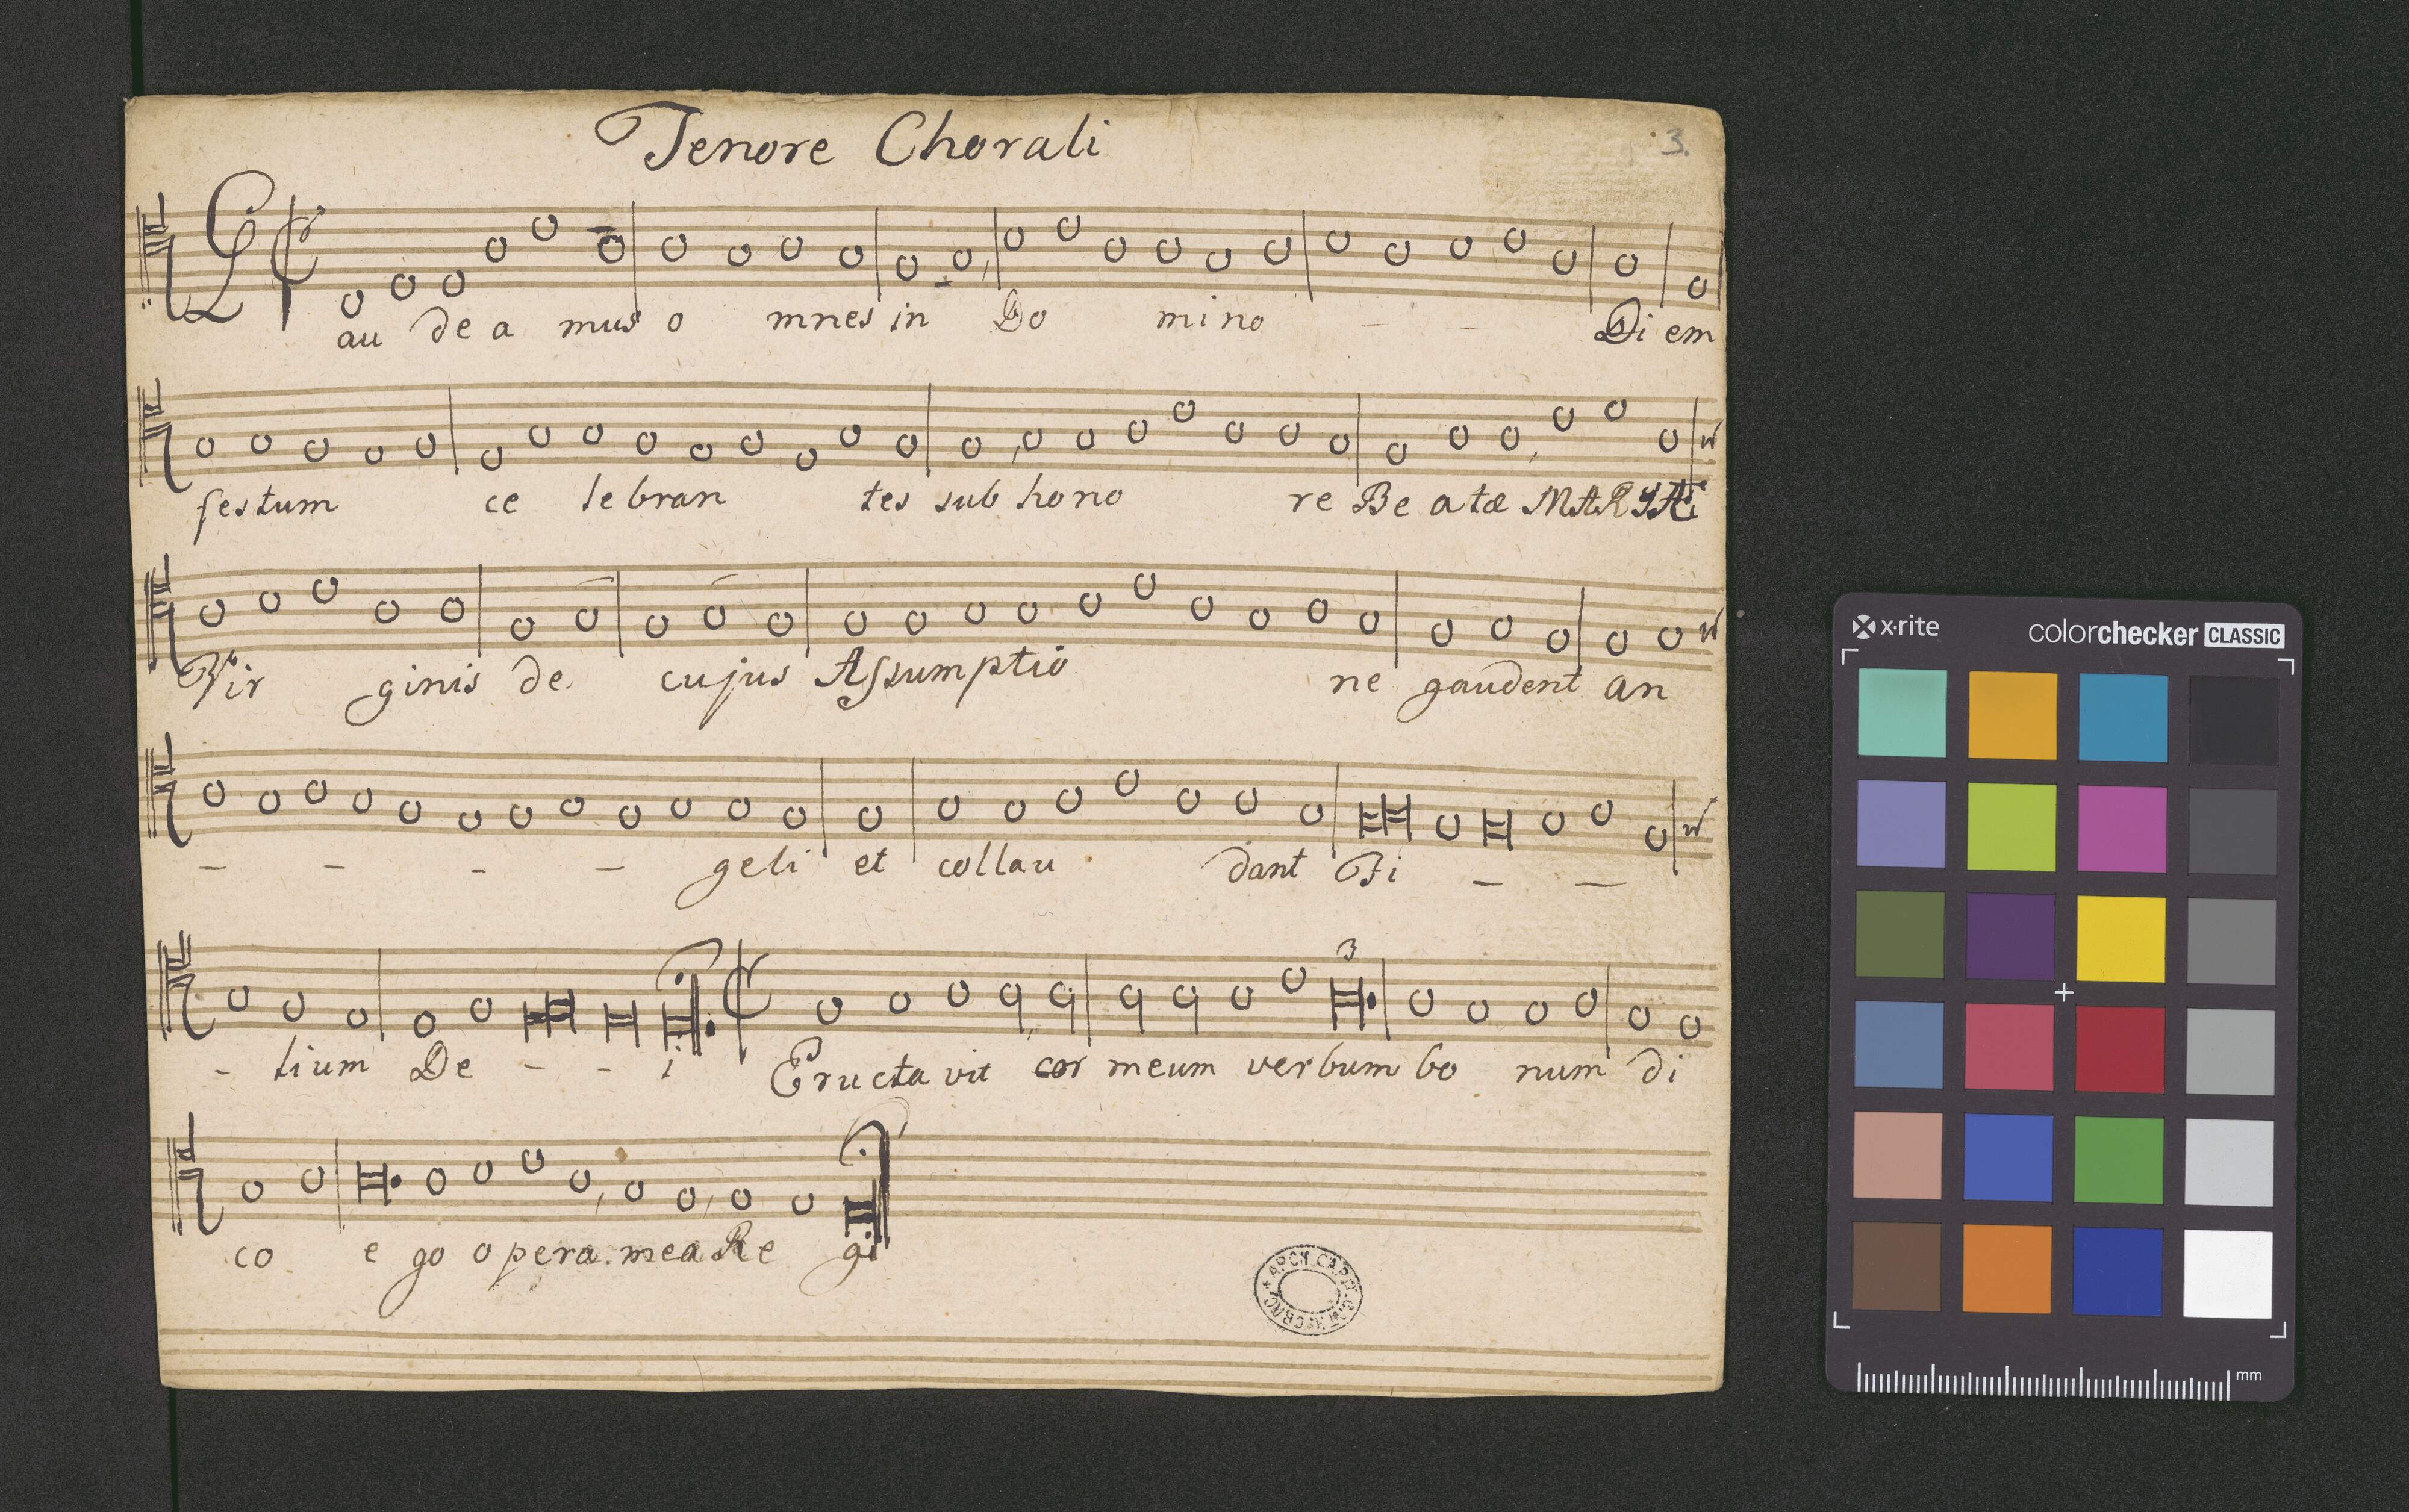 Tenore Chorali
3.
Gau de a mus o mnes in Do mi no - - Di em
festum ce le bran tes sub hono re Be atæ MARIÆ
Vir ginis de cujus Assumptio ne gaudent an
- - - - geli et collau dant Fi - -
- lium De - - i Eructa vit cor meum verbum bo num di
3
co e go opera mea Re gi
x·rite
colorchecker CLASSIC
mm